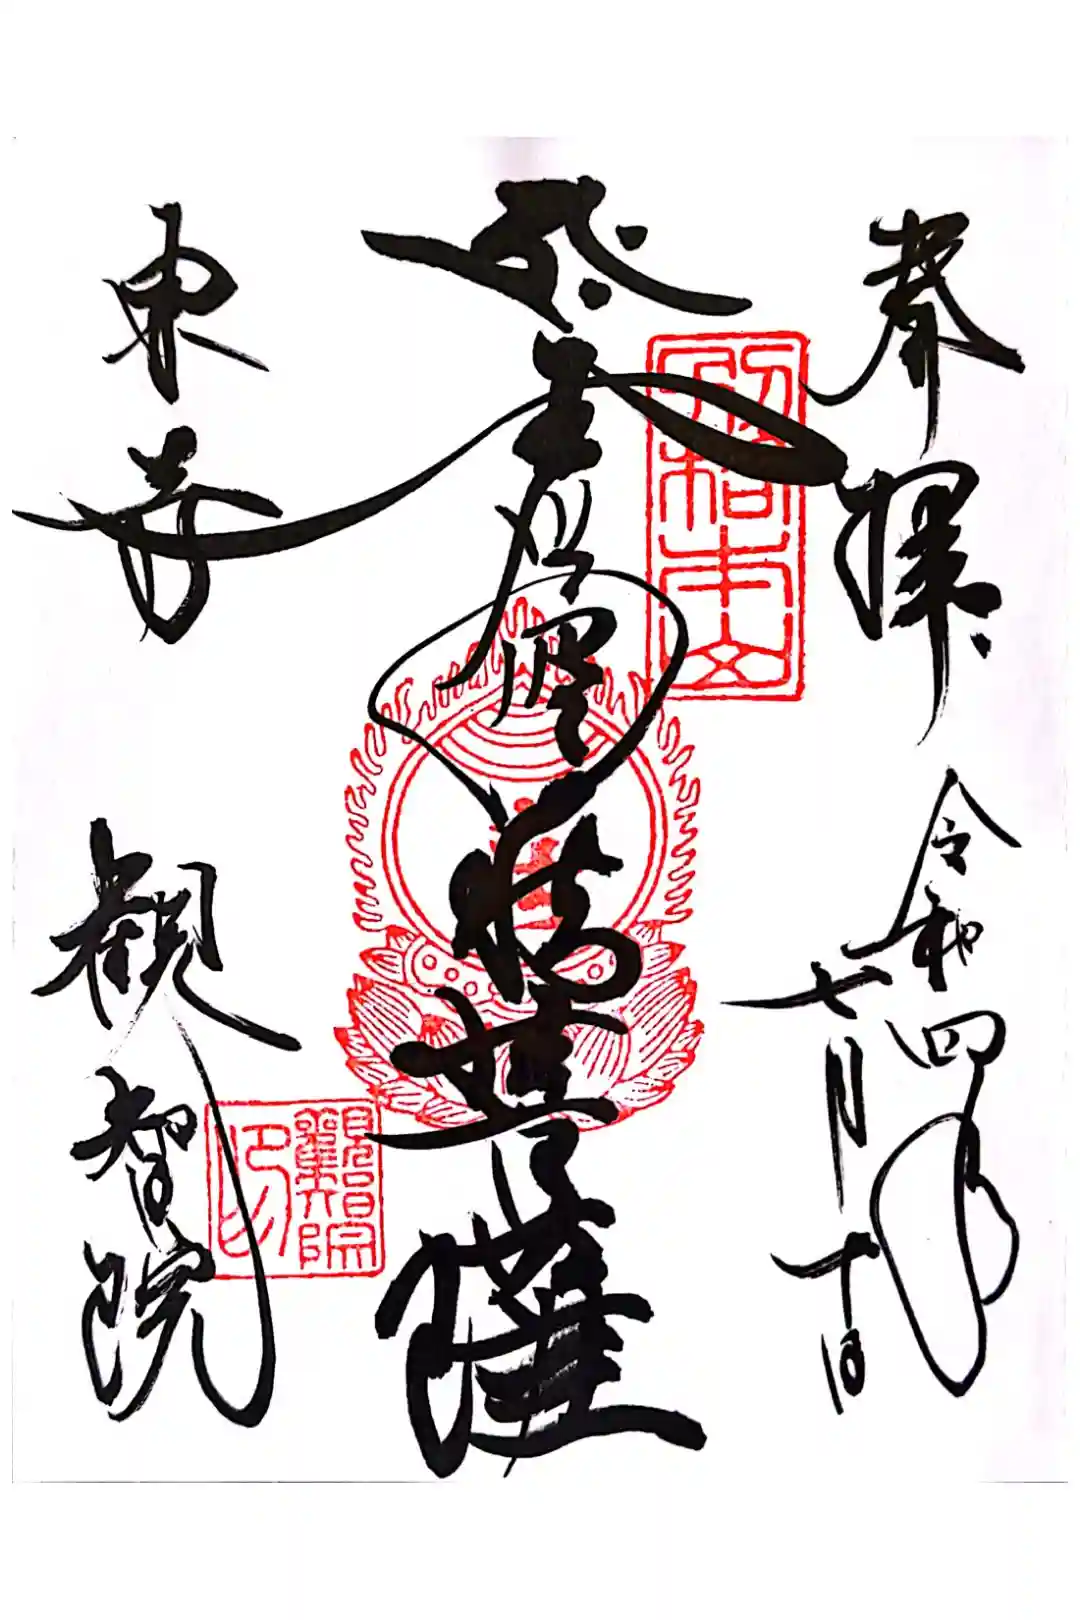 奉拝
令和四年
七月十日
五大虚空蔵菩薩
東寺
観智院
觀智院印